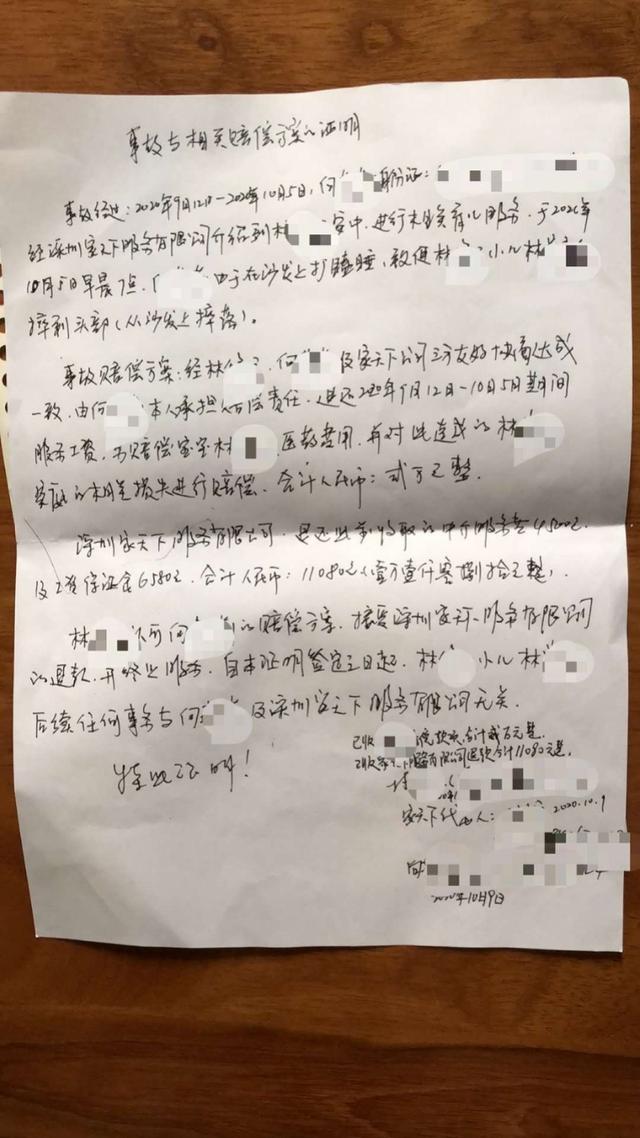 事故与相关赔偿方案的证明
事故经过：2020年9月12日-2020年10月5日，何 身份证：
经深圳家天下服务有限公司介绍到林 家中，进行月婴育儿服务，于2020年
10月5日早晨7点， 由于在沙发上打瞌睡，致使林 小儿林
摔到头部（从沙发上摔落）。
事故赔偿方案：经林 、何 及家天下公司三方友好协商达成
一致，由何 本人承担 责任，退还2020年9月12日-10月5日期间
服务工资，并赔偿宝宝林 医药费用，并对此造成的林
受 的 损失进行赔偿，合计人民币：贰万元整。
深圳家天下服务有限公司，退还此前收取的中介服务费4500元
及工资保证金6580元，合计人民币：11080元（壹万壹仟零捌拾元整）。
林 认可何 的赔偿方案，接受深圳家天下服务有限公司
的退款，并终止服务，自本证明签定之日起，林 小儿林
后续任何事务与何 及深圳家天下服务有限公司无关。
特此证明！
已收 款项合计贰万元整。
已收家天下服务有限公司退款合计11080元整。
家天下代 人： 2020.10.9
2020年10月9日